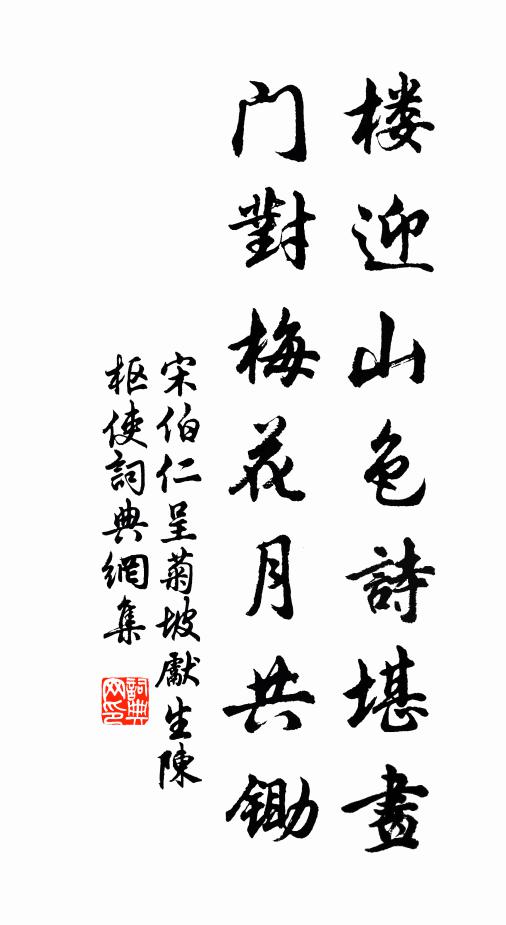 楼迎山色詩堪畫
门對梅花月共锄
宋伯仁呈菊坡獻生陳
枢使詞典網集
詞典網印